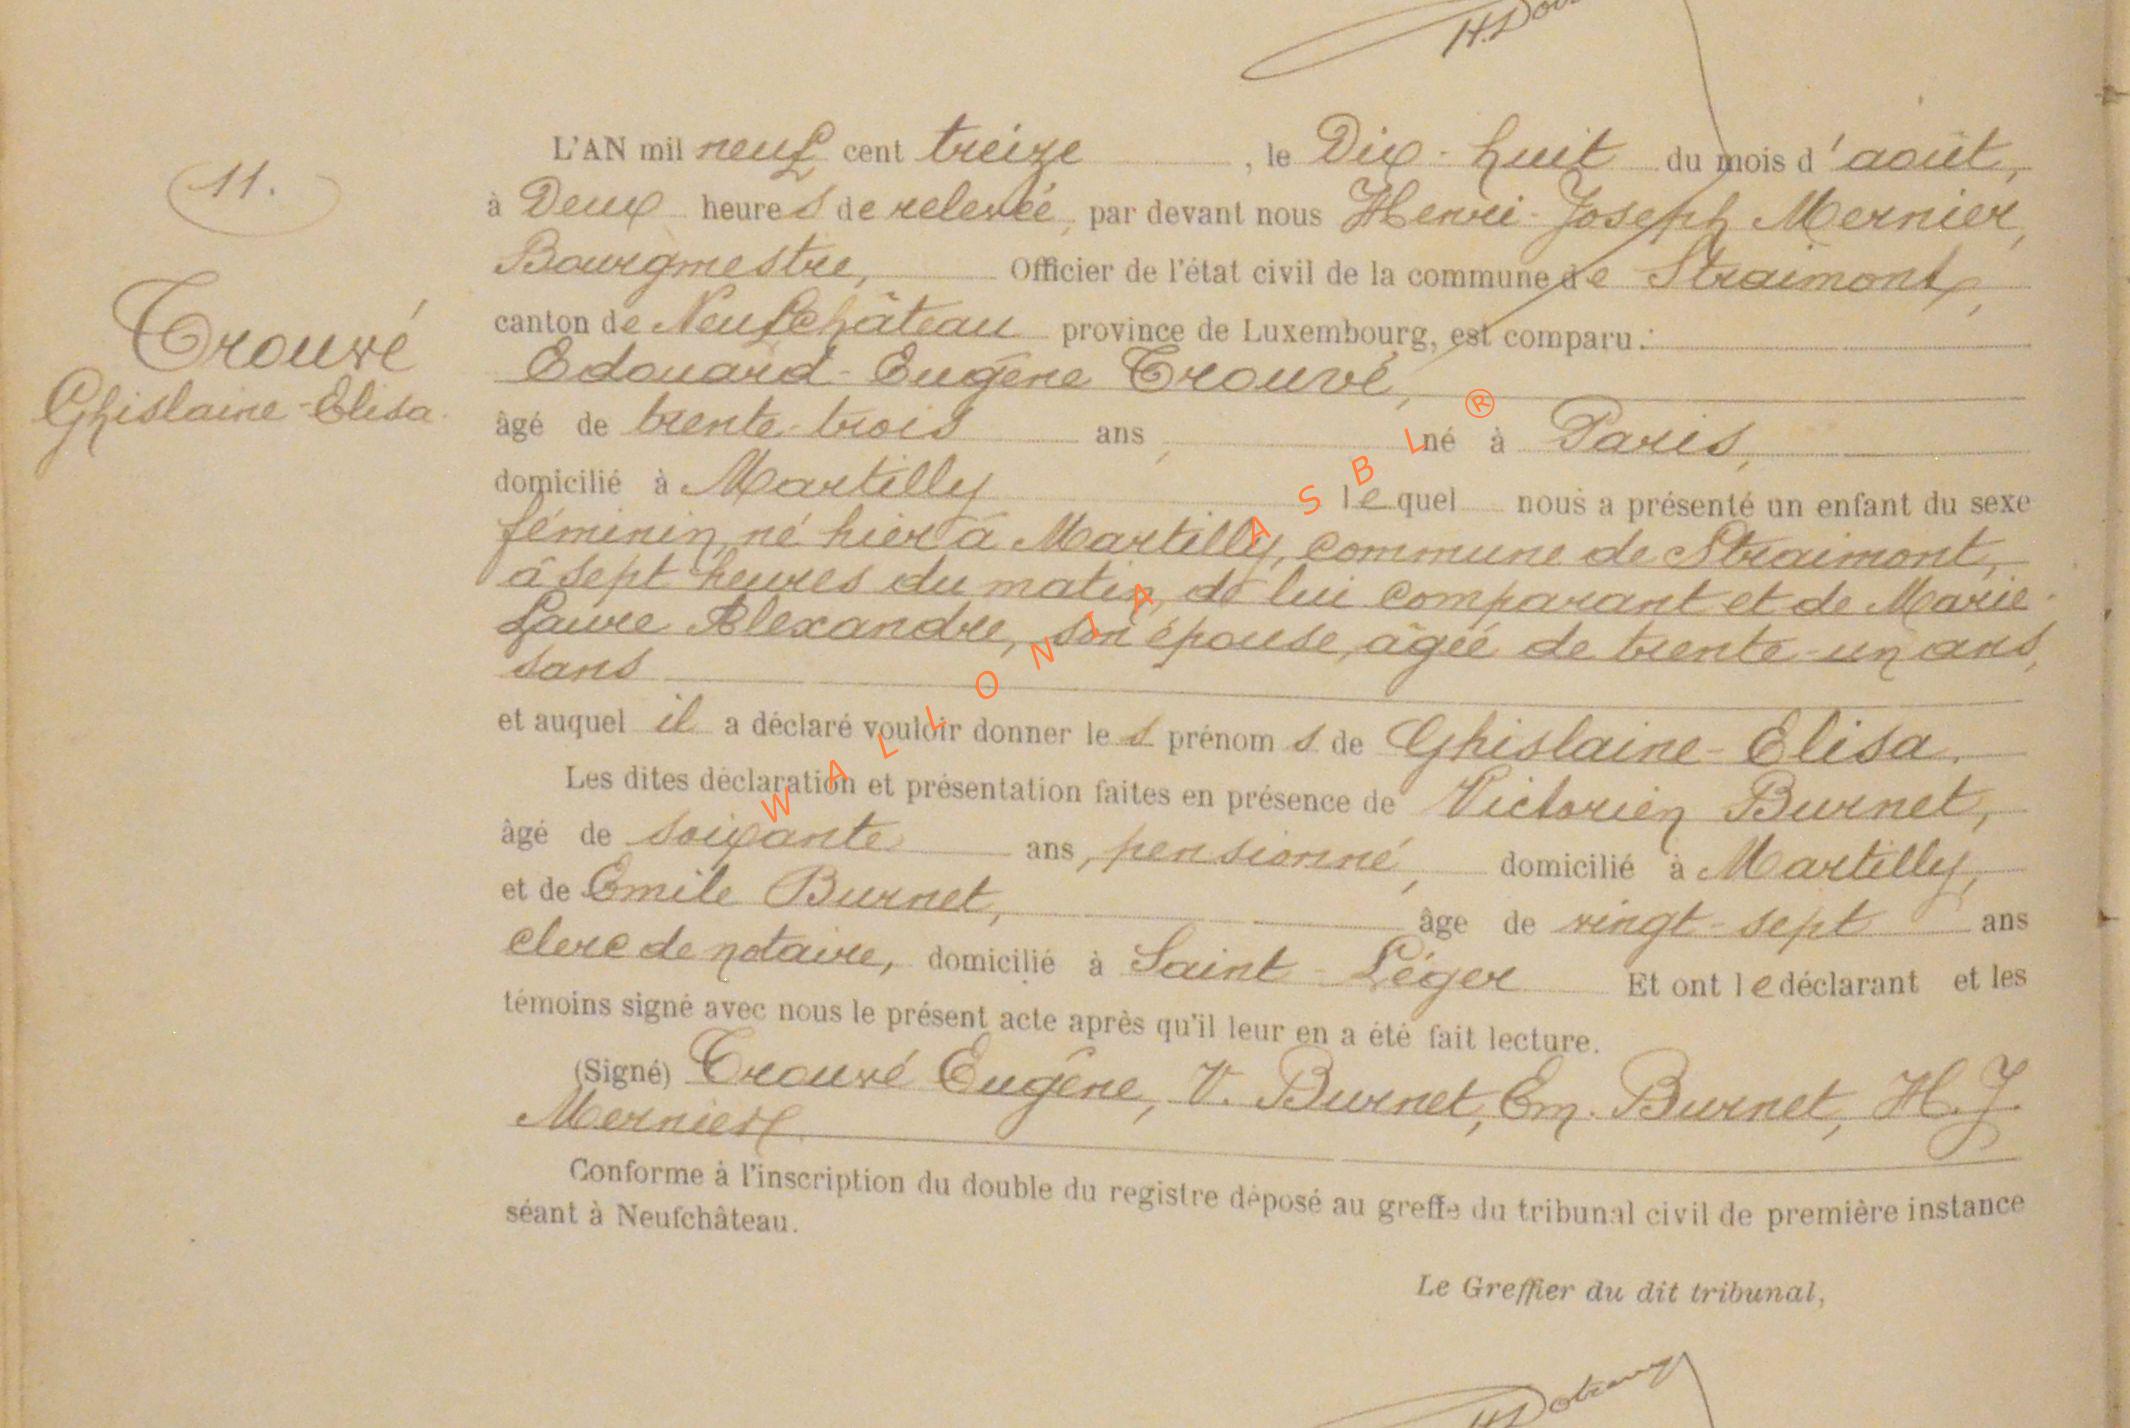 11.
Trouvé
Ghislaine-Elisa.
L'AN mil neuf cent treize, le Dix-huit du mois d'août,
à Deux heures de relevée, par devant nous Henri-Joseph Mernier,
Bourgmestre, Officier de l'état civil de la commune de Straimont,
canton de Neufchâteau province de Luxembourg, est comparu :
Edouard-Eugène Trouvé,
âgé de trente-trois ans, né à Paris,
domicilié à Martilly lequel nous a présenté un enfant du sexe
féminin, né hier à Martilly, commune de Straimont,
à sept heures du matin, de lui comparant et de Marie-
Laure Alexandre, son épouse, âgée de trente-un ans,
sans
et auquel il a déclaré vouloir donner les prénoms de Ghislaine-Elisa.
Les dites déclaration et présentation faites en présence de Victorien Burnet,
âgé de soixante ans, pensionné, domicilié à Martilly,
et de Emile Burnet, âge de vingt-sept ans
clerc de notaire, domicilié à Saint-Léger Et ont le déclarant et les
témoins signé avec nous le présent acte après qu'il leur en a été fait lecture.
(Signé) Trouvé Eugène, V. Burnet, Em. Burnet, H. J.
Mernier.
Conforme à l'inscription du double du registre déposé au greffe du tribunal civil de première instance
séant à Neufchâteau.
Le Greffier du dit tribunal,
WALLONIA ASBL ®